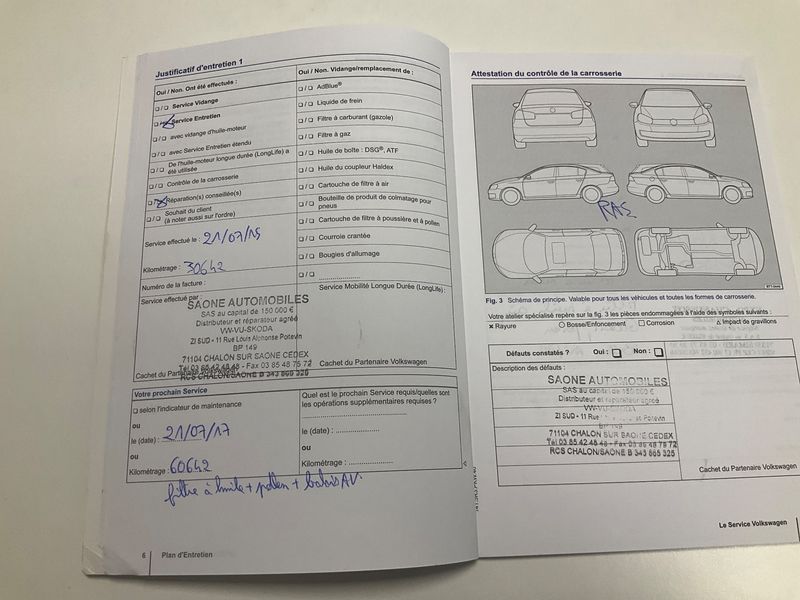 Justificatif d'entretien 1
Oui / Non. Ont été effectués :
❏ / ❏ Service Vidange
❏ / ❏ Service Entretien
❏ / ❏ avec vidange d'huile-moteur
❏ / ❏ avec Service Entretien étendu
❏ / ❏ De l'huile-moteur longue durée (LongLife) a
été utilisée
❏ / ❏ Contrôle de la carrosserie
❏ / ❏ Réparation(s) conseillée(s)
❏ / ❏ Souhait du client
(à noter aussi sur l'ordre)
Service effectué le : 21/07/15
Kilométrage : 30642
Numéro de la facture :
Service effectué par :
SAONE AUTOMOBILES
SAS au capital de 150 000 €
Distributeur et réparateur agréé
VW-VU-SKODA
ZI SUD - 11 Rue Louis Alphonse Poitevin
BP 149
71104 CHALON SUR SAONE CEDEX
Tél 03 85 42 48 48 - Fax 03 85 48 75 72
RCS CHALON/SAONE B 343 865 325
Cachet du Partenaire Volkswagen
Oui / Non. Vidange/remplacement de :
❏ / ❏ AdBlue®
❏ / ❏ Liquide de frein
❏ / ❏ Filtre à carburant (gazole)
❏ / ❏ Filtre à gaz
❏ / ❏ Huile de boîte : DSG®, ATF
❏ / ❏ Huile du coupleur Haldex
❏ / ❏ Cartouche de filtre à air
❏ / ❏ Bouteille de produit de colmatage pour
pneus
❏ / ❏ Cartouche de filtre à poussière et à pollen
❏ / ❏ Courroie crantée
❏ / ❏ Bougies d'allumage
❏ / ❏ ....................
Service Mobilité Longue Durée (LongLife) :
Cachet du Partenaire Volkswagen
Votre prochain Service
❏ selon l'indicateur de maintenance
ou
le (date) : 21/07/17
ou
Kilométrage : 60642
Quel est le prochain Service requis/quelles sont
les opérations supplémentaires requises ?
le (date) : ....................
ou
Kilométrage : ....................
filtre à huile + pollen + balais AV.
6 Plan d'Entretien
Attestation du contrôle de la carrosserie
RAS
Fig. 3 Schéma de principe. Valable pour tous les véhicules et toutes les formes de carrosserie.
Votre atelier spécialisé repère sur la fig. 3 les pièces endommagées à l'aide des symboles suivants :
× Rayure ○ Bosse/Enfoncement □ Corrosion △ Impact de gravillons
Défauts constatés ? Oui : ❏ Non : ❏
Description des défauts :
SAONE AUTOMOBILES
SAS au capital de 150 000 €
Distributeur et réparateur agréé
VW-VU-SKODA
ZI SUD - 11 Rue Poitevin
BP 149
71104 CHALON SUR SAONE CEDEX
Tél 03 85 42 48 48 - Fax 03 85 48 75 72
RCS CHALON/SAONE B 343 865 325
Cachet du Partenaire Volkswagen
Le Service Volkswagen